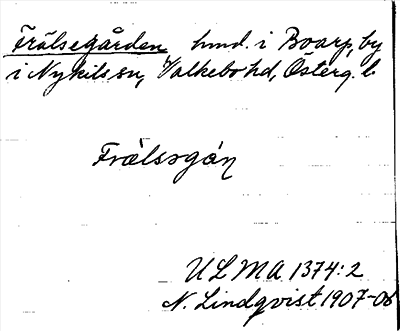 Frälsegården, hmd. i Boarp, by
i Nykils sn, Valkebo hd, Österg. l.
Frälsgán
ULMA 1374:2
N. Lindqvist 1907-06